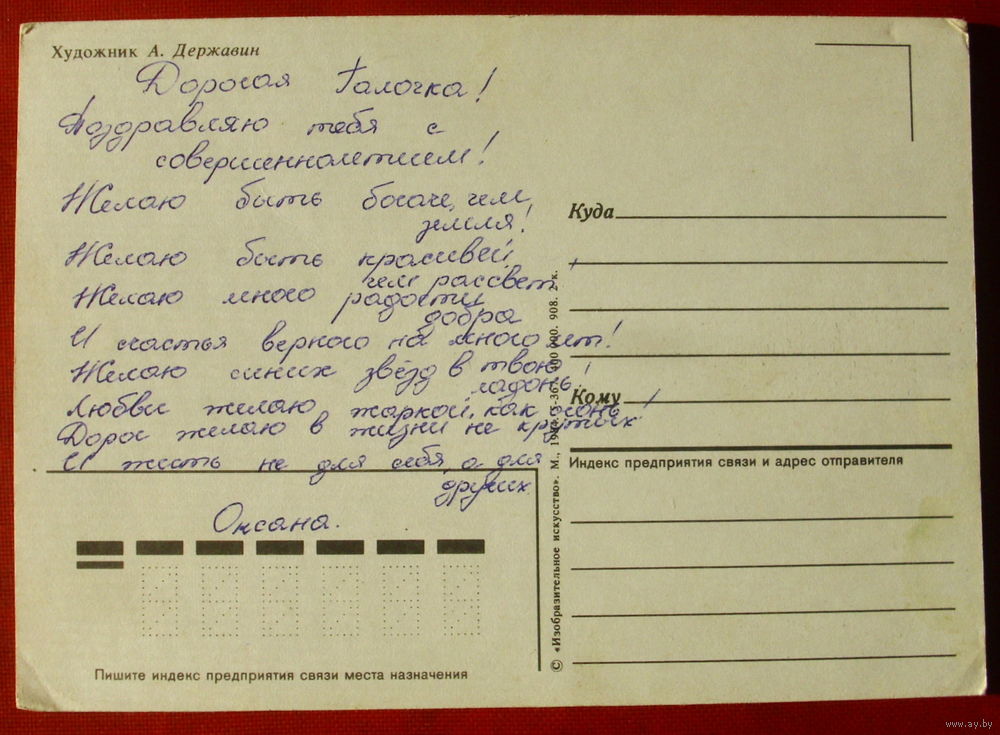 Художник А. Державин
Дорогая Галочка!
Поздравляю тебя с
совершеннолетием!
Желаю быть богаче, чем
земля!
Желаю быть красивей
чем рассвет,
Желаю много радости
добра
И счастья верного на много лет!
Желаю синих звёзд в твою
ладонь!
Любви желаю жаркой, как огонь!
Дорог желаю в жизни не крутых
И жить не для себя, а для
других
Оксана.
Пишите индекс предприятия связи места назначения
© «Изобразительное искусство». М.,
908.
к.
Куда
Кому
Индекс предприятия связи и адрес отправителя
www.ay.by